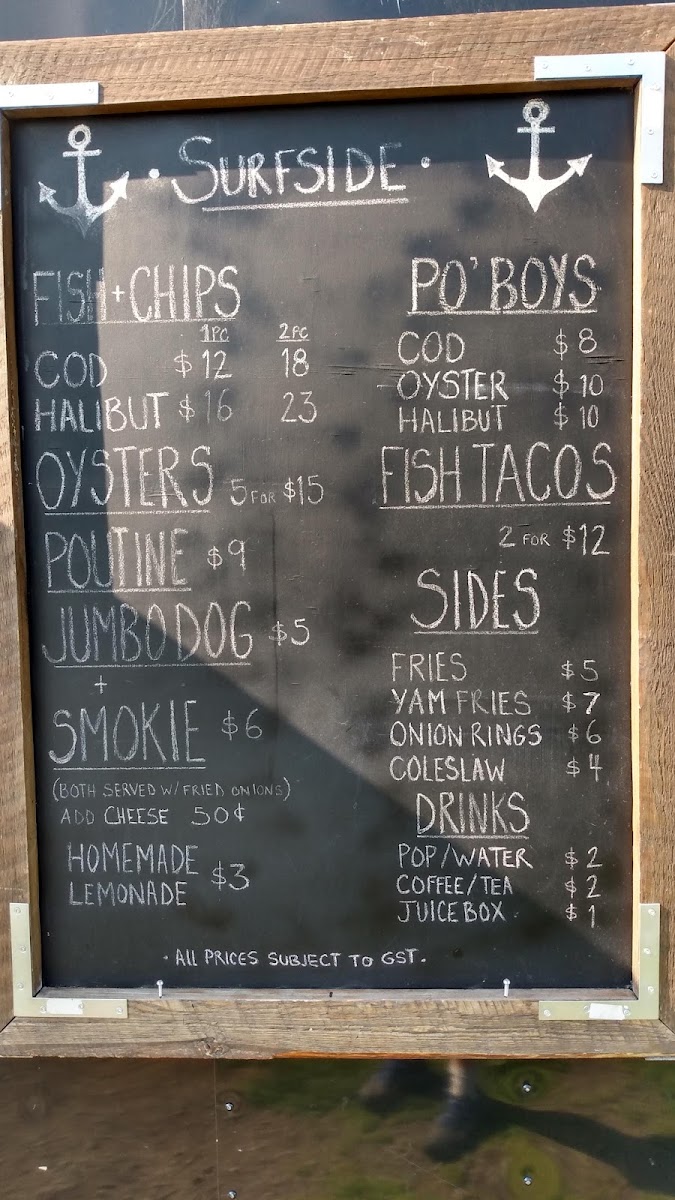 • SURFSIDE •
FISH + CHIPS
1PC 2PC
COD $12 18
HALIBUT $16 23
OYSTERS 5 FOR $15
POUTINE $9
JUMBO DOG $5
+
SMOKIE $6
(BOTH SERVED W/ FRIED ONIONS)
ADD CHEESE 50¢
HOMEMADE
LEMONADE $3
PO' BOYS
COD $8
OYSTER $10
HALIBUT $10
FISH TACOS
2 FOR $12
SIDES
FRIES $5
YAM FRIES $7
ONION RINGS $6
COLESLAW $4
DRINKS
POP/WATER $2
COFFEE/TEA $2
JUICE BOX $1
• ALL PRICES SUBJECT TO GST.